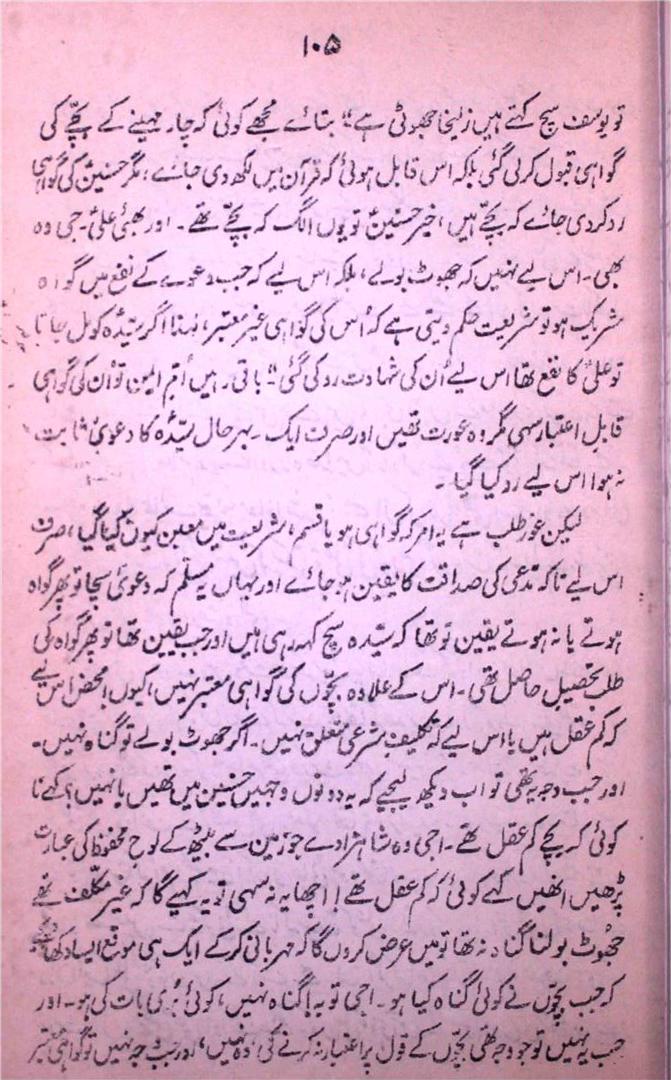 ۱۰۵
تو یوسف سچ کہتے ہیں زلیخا جھوٹی ہے“ بتائے مجھے کوئی کہ چار مہینے کے بچّے کی
گواہی قبول کرلی گئی بلکہ اس قابل ہوئی کہ قرآن میں لکھ دی جائے، مگر حسنینؑ کی گواہی
رد کردی جائے کہ بچّے ہیں، خیر حسنینؑ تو یوں الگ کہ بچّے تھے۔ اور بھئی علیؑ۔ جی وہ
بھی۔ اس لیے نہیں کہ جھوٹ بولے، بلکہ اس لیے کہ جب دعوے کے نفع میں گواہ
شریک ہو تو شریعت حکم دیتی ہے کہ اُس کی گواہی غیر معتبر، لہٰذا اگر سیّدہ کو مل جاتا
تو علیؑ کا نفع تھا اس لیے اُن کی شہادت رد کی گئی“ باقی۔ ہیں اُمّ ایمن تو اُن کی گواہی
قابل اعتبار سہی مگر وہ عورت تھیں اور صرف ایک۔ بہرحال سیّدہ کا دعویٰ ثابت
نہ ہوا اس لیے رد کیا گیا۔
لیکن غور طلب ہے یہ امر کہ گواہی ہو یا قسم، شریعت میں معین کیوں کیا گیا، صرف
اس لیے تاکہ مدّعی کی صداقت کا یقین ہو جائے اور یہاں یہ مسلّم کہ دعویٰ سچا تو پھر گواہ
ہوتے یا نہ ہوتے یقین تو تھا کہ سیّدہ سچ کہہ رہی ہیں اور جب یقین تھا تو پھر گواہ کی
طلب تحصیل حاصل تھی۔ اس کے علاوہ بچّوں کی گواہی معتبر نہیں، کیوں؟ محض اس لیے
کہ کم عقل ہیں یا اس لیے کہ تکلیف شرعی متعلق نہیں۔ اگر جھوٹ بولے تو گناہ نہیں۔
اور جب وجہ یہ تھی تو اب دیکھ لیجیے کہ یہ دونوں وجہیں حسنین میں تھیں یا نہیں؟ کہے نا
کوئی کہ بچّے کم عقل تھے۔ اجی وہ شاہزادے جو زمین سے بیٹھ کے لوح محفوظ کی عبارت
پڑھیں انھیں کہے کوئی کہ کم عقل تھے! اچھا یہ نہ سہی تو یہ کہیے گا کہ غیر مکلّف تھے
جھوٹ بولنا گناہ نہ تھا تو میں عرض کروں گا کہ مہربانی کرکے ایک ہی موقع ایسا دکھا
کہ جب بچّوں نے کوئی گناہ کیا ہو۔ اجی توبہ! گناہ نہیں، کوئی بُری بات کی ہو۔ اور
جب یہ نہیں تو جو وجہ تھی بچّوں کے قول پر اعتبار نہ کرنے کی، وہ نہیں، اور جب وجہ نہیں تو گواہی معتبر